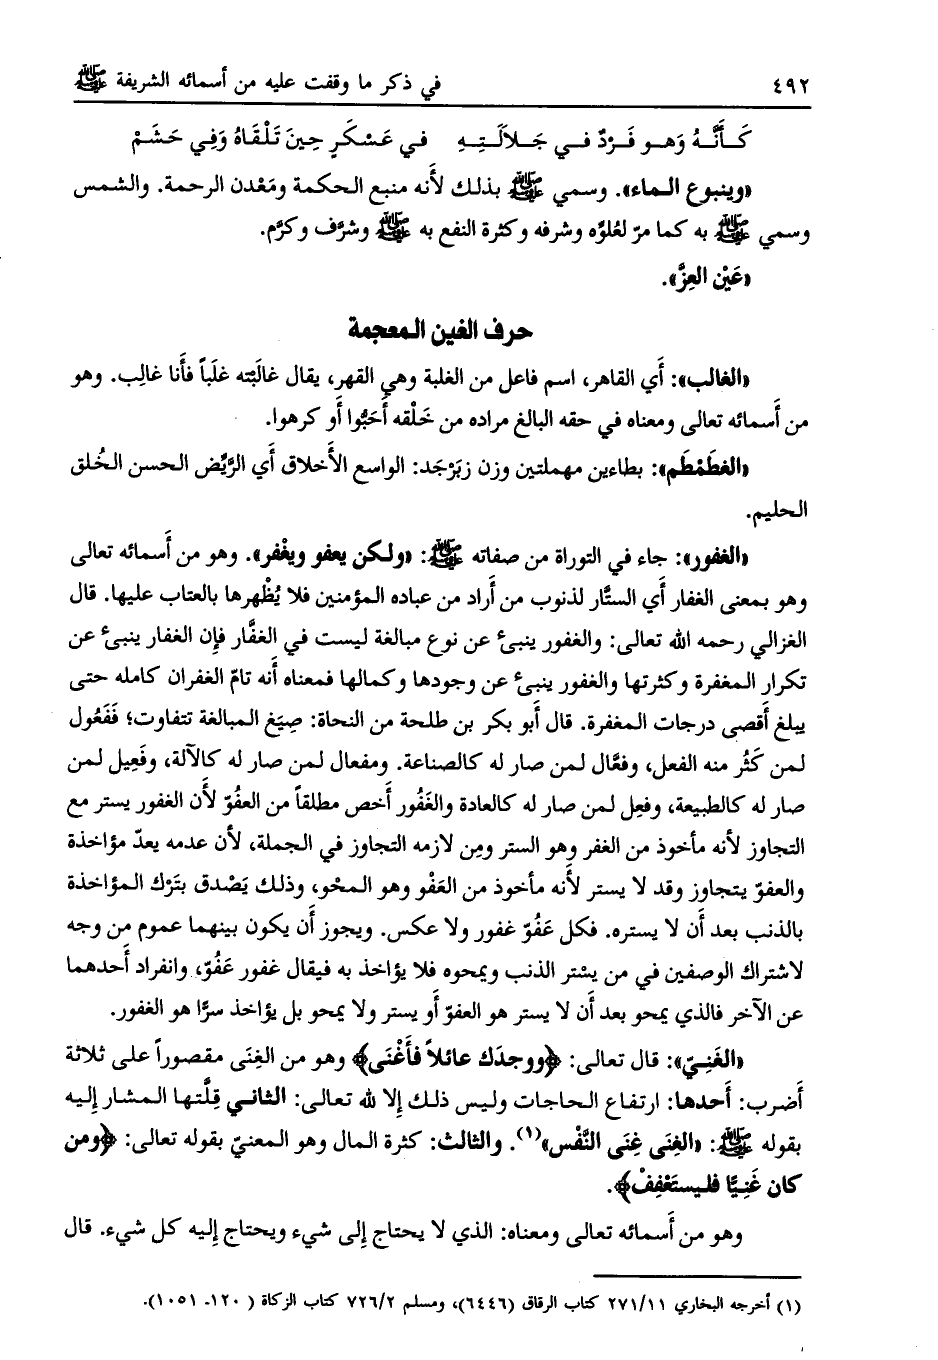 ٤٩٢ في ذكر ما وقفت عليه من أسمائه الشريفة ﷺ
كَـأَنَّـهُ وَهـو فَـرْدٌ فـي جَـلاَلَـتِـهِ فـي عَـسْـكَـرٍ حِينَ تَـلْـقَـاهُ وَفِي حَـشَـمْ
«وينبوع الـماء». وسمي ﷺ بذلك لأنه منبع الحكمة ومَعْدن الرحمة. والشمس
وسمي ﷺ به كما مرّ لعُلوّه وشرفه وكثرة النفع به ﷺ وشرَّف وكرَّم.
«عَيْن العِزّ».
حرف الغين الـمعجمة
«الغالب»: أَي القاهر، اسم فاعل من الغلبة وهي القهر، يقال غالَبْته غلَباً فأَنا غالِب. وهو
من أَسمائه تعالى ومعناه في حقه البالغ مراده من خَلْقه أَحَبُّوا أَو كرهوا.
«الغطَمْطَم»: بطاءين مهملتين وزن زبَرْجَد: الواسع الأَخلاق أَي الرَّيِّض الـحسن الـخُلق
الـحليم.
«الغفور»: جاء في التوراة من صفاته ﷺ: «ولـكن يعفو ويغْفر». وهو من أَسمائه تعالى
وهو بـمعنى الغفار أَي الستَّار لذنوب من أَراد من عباده الـمؤمنين فلا يُظْهرها بالعتاب عليها. قال
الغزالي رحمه الله تعالى: والغفور ينبىء عن نوع مبالغة ليست في الغفَّار فإن الغفار ينبىء عن
تكرار الـمغفرة وكثرتها والغفور ينبىء عن وجودها وكمالها فمعناه أنه تامّ الغفران كامله حتى
يبلغ أَقصى درجات الـمغفرة. قال أَبو بكر بن طلحة من النحاة: صِيَغ الـمبالغة تتفاوت؛ فَفَعُول
لـمن كَثُر منه الفعل، وفعَّال لـمن صار له كالصناعة. ومفعال لـمن صار له كالآلة، وفَعِيل لـمن
صار له كالطبيعة، وفعِل لـمن صار له كالعادة والغَفُور أَخص مطلقاً من العفُوّ لأَن الغفور يستر مع
التجاوز لأنه مأخوذ من الغفر وهو الستر ومِن لازمه التجاوز في الجملة، لأن عدمه يعدّ مؤاخذة
والعفوّ يتجاوز وقد لا يستر لأنه مأخوذ من العَفْو وهو الـمحْو، وذلك يَصْدق بتَرْك الـمؤاخذة
بالذنب بعد أَن لا يستره. فكل عَفُوّ غفور ولا عكس. ويجوز أَن يكون بينهما عموم من وجه
لاشتراك الوصفين في من يسْتر الذنب ويمحوه فلا يؤاخذ به فيقال غفور عَفُوّ، وانفراد أَحدهما
عن الآخر فالذي يمحو بعد أَن لا يستر هو العفوّ أَو يستر ولا يمحو بل يؤاخذ سرًّا هو الغفور.
«الغَنِـيّ»: قال تعالى: ﴿ووجدَك عائلاً فأَغْنَى﴾ وهو من الغِنَى مقصوراً على ثلاثة
أَضرب: أَحدها: ارتفاع الـحاجات وليس ذلك إِلا لله تعالى: الثاني قِلَّتها الـمشار إِليه
بقوله ﷺ: «الغِنَى غِنَى النَّفْس»(١). والثالث: كثرة المال وهو الـمعنيّ بقوله تعالى: ﴿ومن
كان غَنِيًّا فلـيستَعْفِفْ﴾.
وهو من أَسمائه تعالى ومعناه: الذي لا يحتاج إِلى شيء ويحتاج إِليه كل شيء. قال
(١) أخرجه البخاري ٢٧١/١١ كتاب الرقاق (٦٤٤٦)، ومسلم ٧٢٦/٢ كتاب الزكاة (١٢٠ـ ١٠٥١).